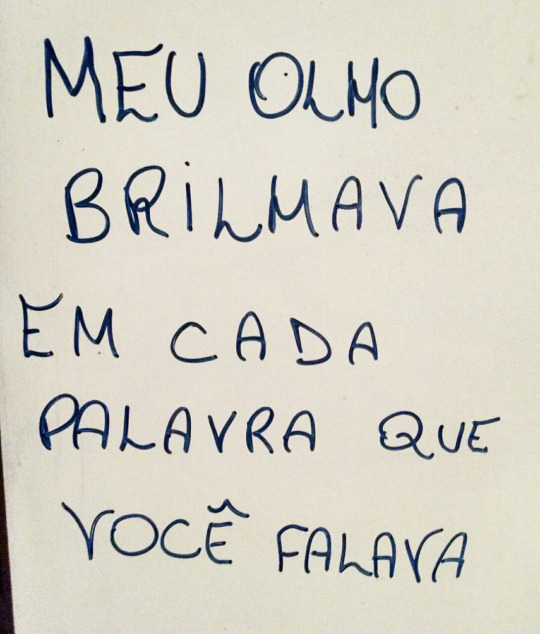 MEU OLHO
BRILHAVA
EM CADA
PALAVRA QUE
VOCÊ FALAVA